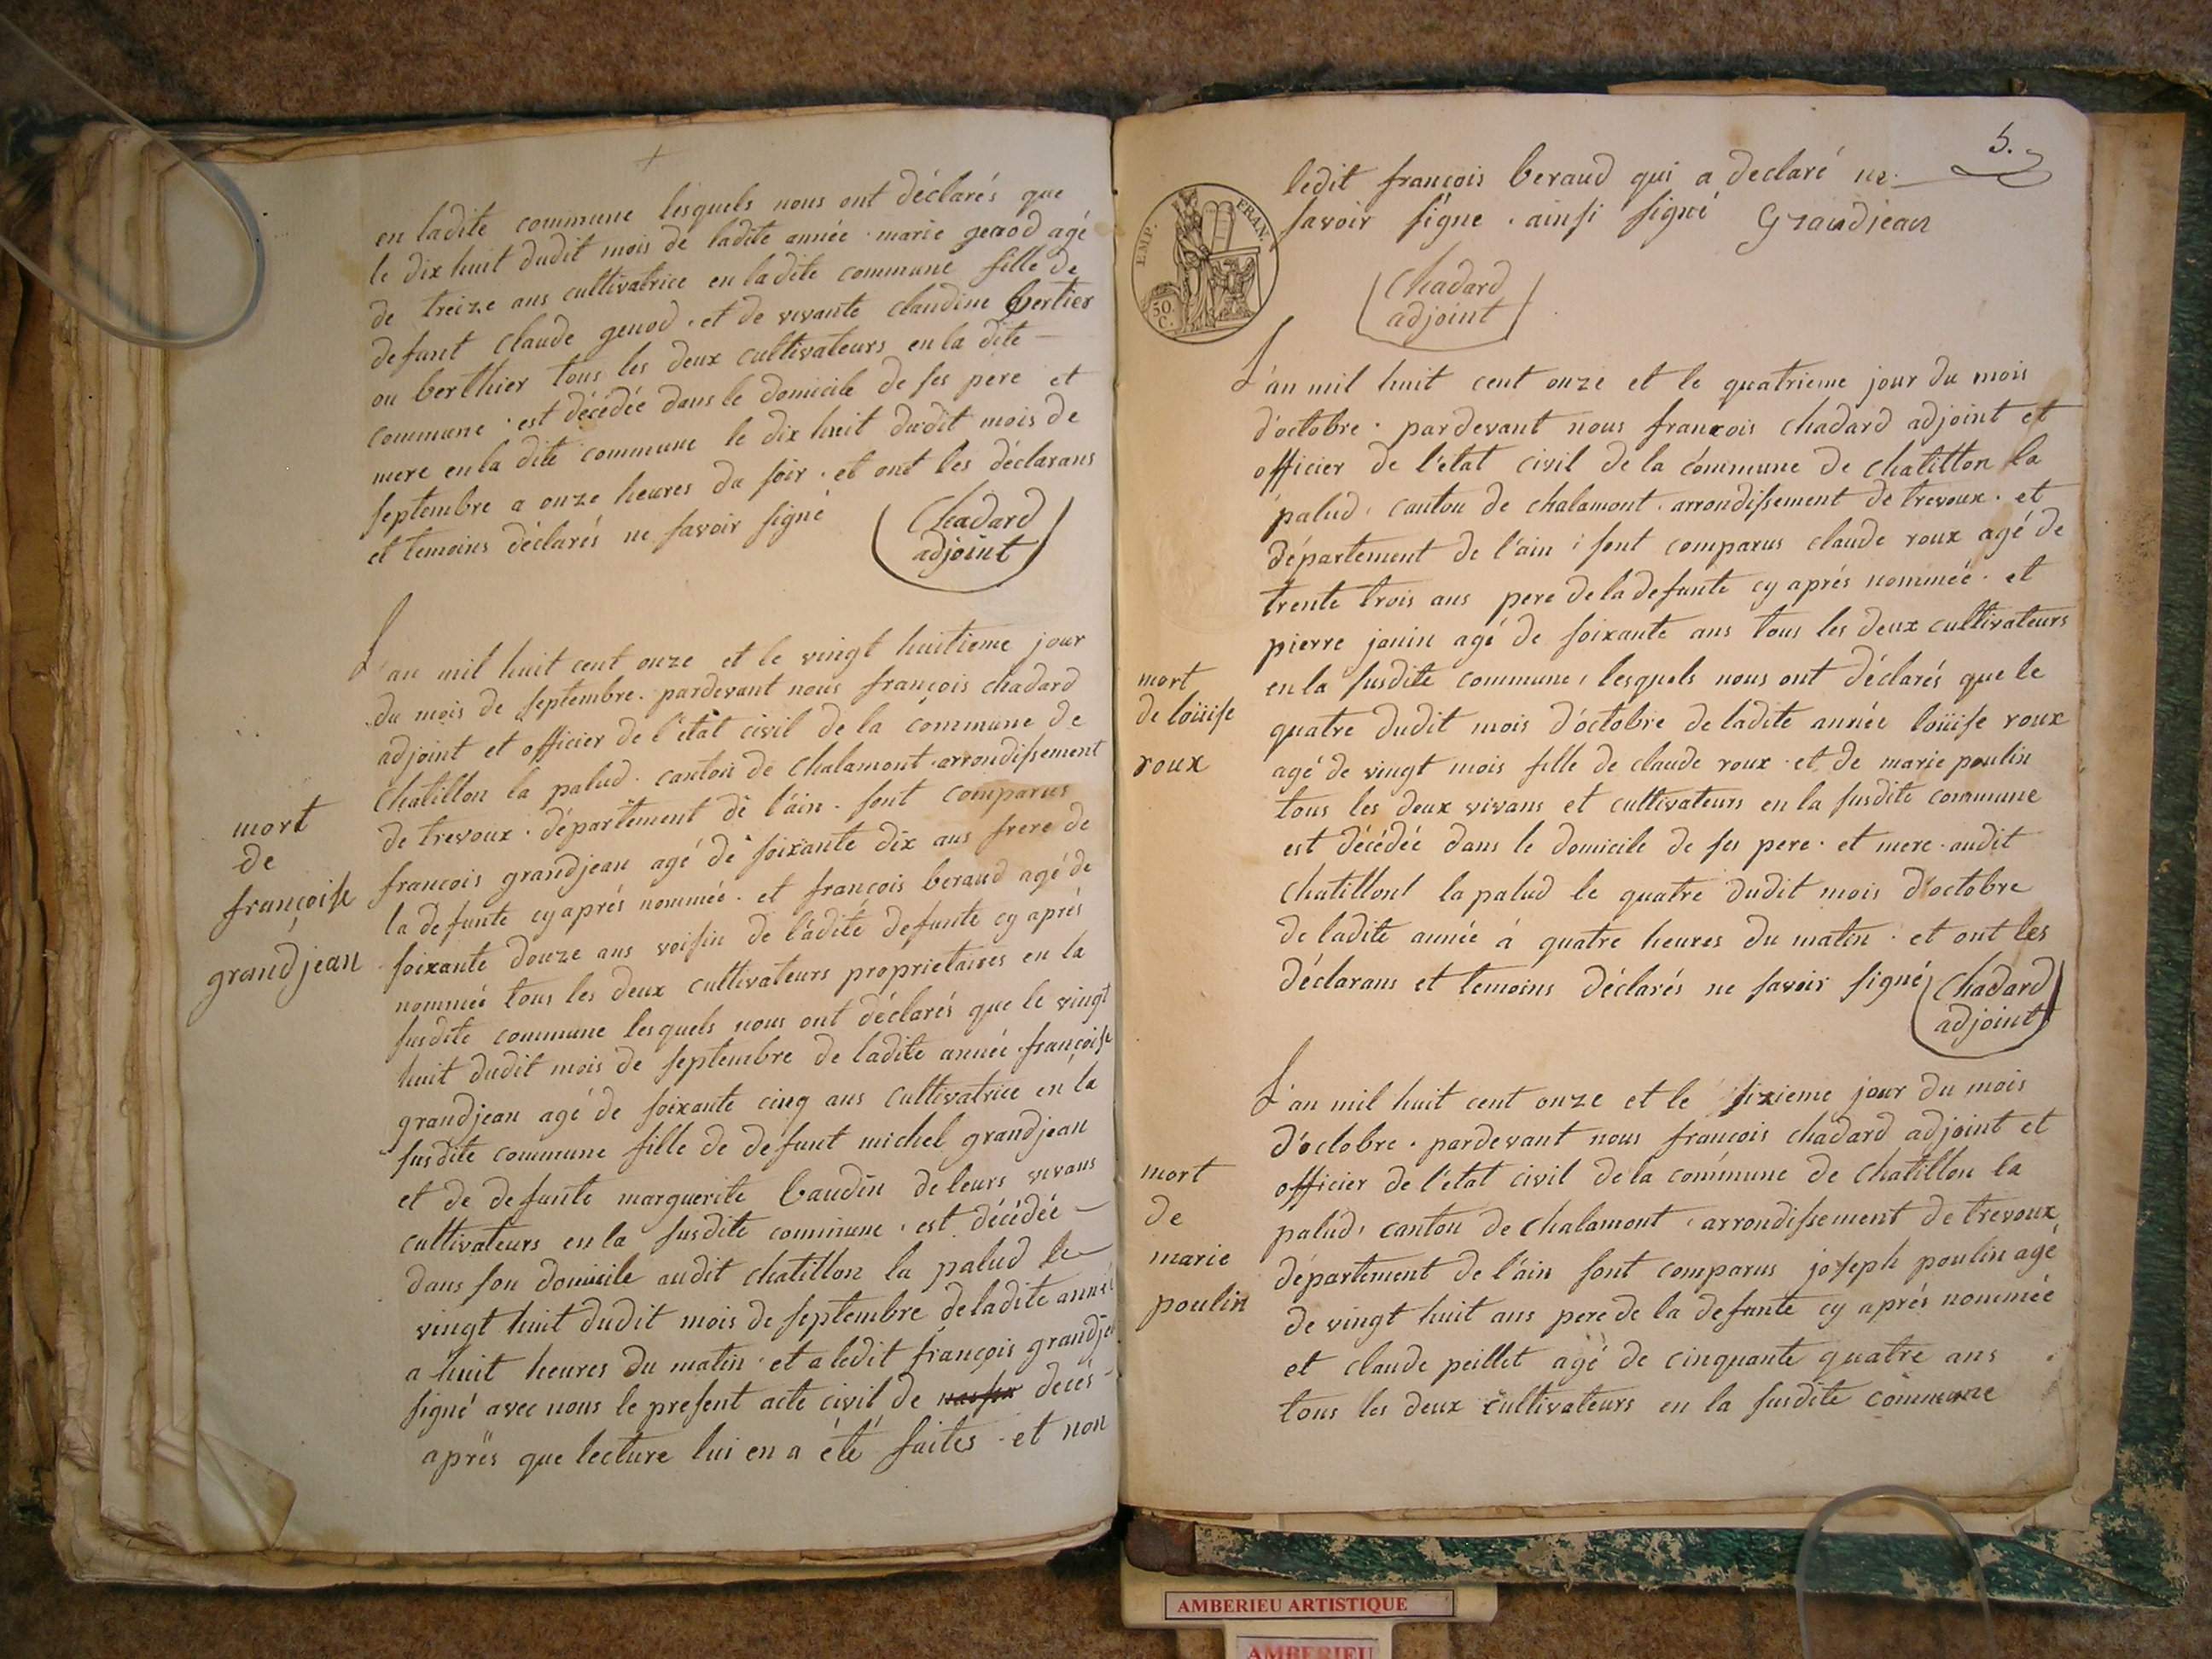 en ladite commune lesquels nous ont déclarés que
le dix huit dudit mois de ladite année . marie genod agé
de treize ans cultivatrice en ladite commune fille de
defunt claude genod . et de vivante claudine bertier
ou berthier tous les deux cultivateurs en la dite
commune . est décédée dans le domicile de ses pere et
mere en la dite commune le dix huit dudit mois de
septembre a onze heures du soir . et ont les déclarans
et temoins déclarés ne savoir signé
Chadard
adjoint
L'an mil huit cent onze et le vingt huitieme jour
du mois de septembre . pardevant nous françois chadard
adjoint et officier de l'état civil de la commune de
chatillon la palud . canton de chalamont . arrondissement
de trevoux . département de l'ain . sont comparus
francois grandjean agé de soixante dix ans frere de
la defunte cy aprés nommée . et françois beraud agé de
soixante douze ans voisin de ladite defunte cy aprés
nommée tous les deux cultivateurs proprietaires en la
susdite commune lesquels nous ont déclarés que le vingt
huit dudit mois de septembre de ladite année françoise
grandjean agé de soixante cinq ans cultivatrice en la
susdite commune fille de defunt michel grandjean
et de defunte marguerite baudin de leurs vivans
cultivateurs en la susdite commune . est décédée
dans son domicile audit chatillon la palud le
vingt huit dudit mois de septembre de ladite année
a huit heures du matin . et a ledit françois grandje
signé avec nous le present acte civil de decés
après que lecture lui en a été faites . et non
mort
de
françoise
grandjean
5.
ledit françois beraud qui a declaré ne
savoir signe . ainsi signé Grandjean
Chadard
adjoint
EMP. FRAN.
50
C.
L'an mil huit cent onze et le quatrieme jour du mois
d'octobre . pardevant nous francois chadard adjoint et
officier de l'état civil de la commune de chatillon la
palud . canton de chalamont . arrondissement de trevoux . et
département de l'ain ; sont comparus claude roux agé de
trente trois ans pere de la defunte cy aprés nommée . et
pierre janin agé de soixante ans tous les deux cultivateurs
en la susdite commune , lesquels nous ont déclarés que le
quatre dudit mois d'octobre de ladite année loüise roux
agé de vingt mois fille de claude roux . et de marie poulin
tous les deux vivans et cultivateurs en la susdite commune
est décédée dans le domicile de ses pere . et mere . audit
chatillon la palud le quatre dudit mois d'octobre
de ladite année à quatre heures du matin . et ont les
déclarans et temoins déclarés ne savoir signé
Chadard
adjoint
mort
de loüise
roux
L'an mil huit cent onze et le sixieme jour du mois
d'octobre . pardevant nous francois chadard adjoint et
officier de l'état civil de la commune de chatillon la
palud , canton de chalamont , arrondissement de trevoux
département de l'ain sont comparus joseph poulin agé
de vingt huit ans pere de la defunte cy aprés nommée
et claude peillet agé de cinquante quatre ans
tous les deux cultivateurs en la susdite commune
mort
de
marie
poulin
AMBERIEU ARTISTIQUE
AMBERIEU